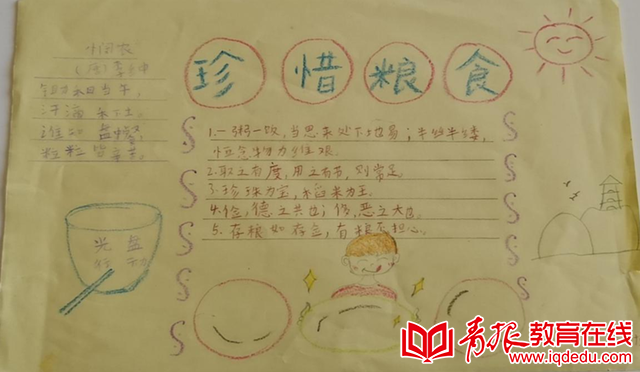 珍惜粮食
悯农
(唐)李绅
锄禾日当午,
汗滴禾下土。
谁知盘中餐,
粒粒皆辛苦。
1.一粥一饭,当思来处不易;半丝半缕,
恒念物力维艰。
2.取之有度,用之有节,则常足。
3.珍珠为宝,稻米为王。
4.俭,德之共也;侈,恶之大也。
5.存粮如存金,有粮不担心。
光盘
行动
青报教育在线
www.iqdedu.com